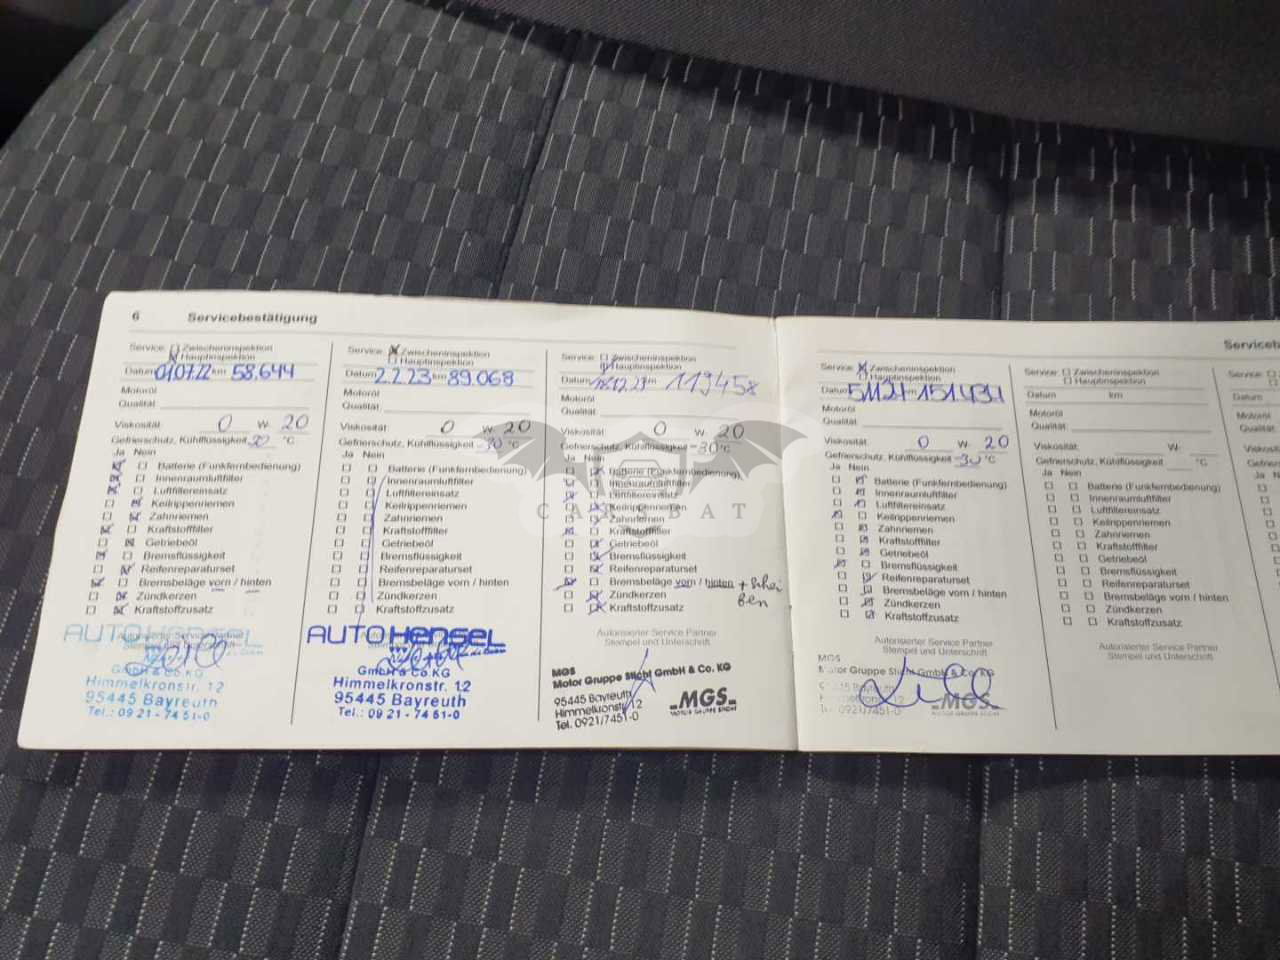 6 Servicebestätigung
Service: Zwischeninspektion
Hauptinspektion
Datum 01.07.22 km 58.644
Motoröl
Qualität
Viskosität 0 W- 20
Gefrierschutz, Kühlflüssigkeit °C
Ja Nein
Batterie (Funkfernbedienung)
Innenraumluftfilter
Luftfiltereinsatz
Keilrippenriemen
Zahnriemen
Kraftstofffilter
Getriebeöl
Bremsflüssigkeit
Reifenreparaturset
Bremsbeläge vorn / hinten
Zündkerzen
Kraftstoffzusatz
Autorisierter Service Partner
AUTO HENSEL
GmbH & Co.KG
Himmelkronstr. 12
95445 Bayreuth
Tel.: 09 21 - 74 51-0
Service: Zwischeninspektion
Hauptinspektion
Datum 2.2.23 km 89.068
Motoröl
Qualität
Viskosität 0 W- 20
Gefrierschutz, Kühlflüssigkeit -30 °C
Ja Nein
Batterie (Funkfernbedienung)
Innenraumluftfilter
Luftfiltereinsatz
Keilrippenriemen
Zahnriemen
Kraftstofffilter
Getriebeöl
Bremsflüssigkeit
Reifenreparaturset
Bremsbeläge vorn / hinten
Zündkerzen
Kraftstoffzusatz
AUTO HENSEL
GmbH & Co.KG
Himmelkronstr. 12
95445 Bayreuth
Tel.: 09 21 - 74 51-0
Service: Zwischeninspektion
Hauptinspektion
Datum 12.23 km 119458
Motoröl
Qualität
Viskosität 0 W- 20
Gefrierschutz, Kühlflüssigkeit -30 °C
Ja Nein
Batterie (Funkfernbedienung)
Innenraumluftfilter
Luftfiltereinsatz
Keilrippenriemen
Zahnriemen
Kraftstofffilter
Getriebeöl
Bremsflüssigkeit
Reifenreparaturset
Bremsbeläge vorn / hinten + Schei
ben
Zündkerzen
Kraftstoffzusatz
Autorisierter Service Partner
Stempel und Unterschrift
MGS
Motor Gruppe Sticht GmbH & Co. KG
95445 Bayreuth
Himmelkronstr. 12
Tel. 0921/7451-0
MGS
MOTOR GRUPPE STICHT
Service: Zwischeninspektion
Hauptinspektion
Datum 5.11.24 151.434
Motoröl
Qualität
Viskosität 0 W- 20
Gefrierschutz, Kühlflüssigkeit -30 °C
Ja Nein
Batterie (Funkfernbedienung)
Innenraumluftfilter
Luftfiltereinsatz
Keilrippenriemen
Zahnriemen
Kraftstofffilter
Getriebeöl
Bremsflüssigkeit
Reifenreparaturset
Bremsbeläge vorn / hinten
Zündkerzen
Kraftstoffzusatz
Autorisierter Service Partner
Stempel und Unterschrift
MGS
Motor Gruppe Sticht GmbH & Co. KG
Bayreuth
MGS
MOTOR GRUPPE STICHT
Service: Zwischeninspektion
Hauptinspektion
Datum km
Motoröl
Qualität
Viskosität W-
Gefrierschutz, Kühlflüssigkeit °C
Ja Nein
Batterie (Funkfernbedienung)
Innenraumluftfilter
Luftfiltereinsatz
Keilrippenriemen
Zahnriemen
Kraftstofffilter
Getriebeöl
Bremsflüssigkeit
Reifenreparaturset
Bremsbeläge vorn / hinten
Zündkerzen
Kraftstoffzusatz
Autorisierter Service Partner
Stempel und Unterschrift
Serviceb
Service:
Datum
Motoröl
Qualität
Viskosität
Ja
CARBAT